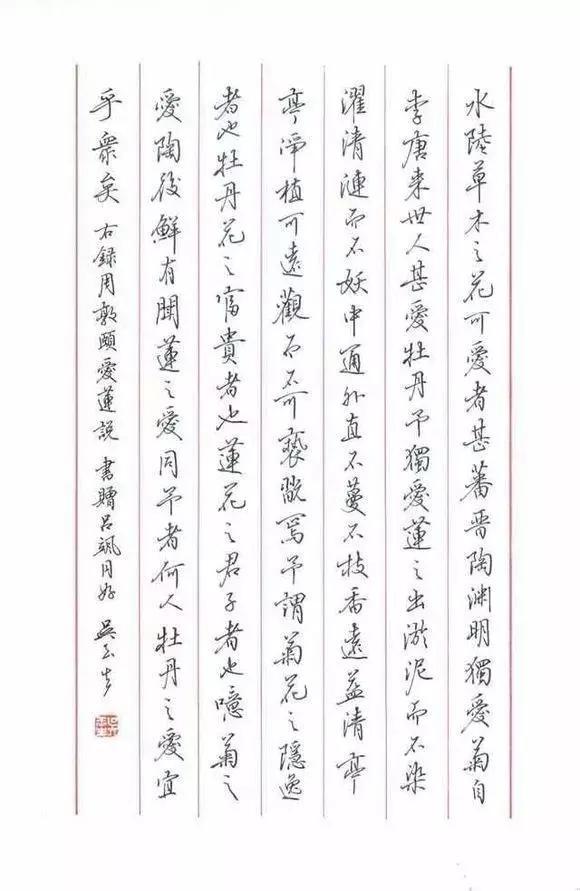 水陸草木之花可愛者甚蕃晋陶渊明獨愛菊自
李唐来世人甚愛牡丹予獨愛蓮之出淤泥而不染
濯清漣而不妖中通外直不蔓不枝香遠益清亭
亭淨植可遠觀而不可褻翫焉予謂菊花之隱逸
者也牡丹花之富貴者也蓮花之君子者也噫菊之
愛陶後鮮有聞蓮之愛同予者何人牡丹之愛宜
乎衆矣 右録周敦頤愛蓮説 書贈呂颯同好 吳玉生